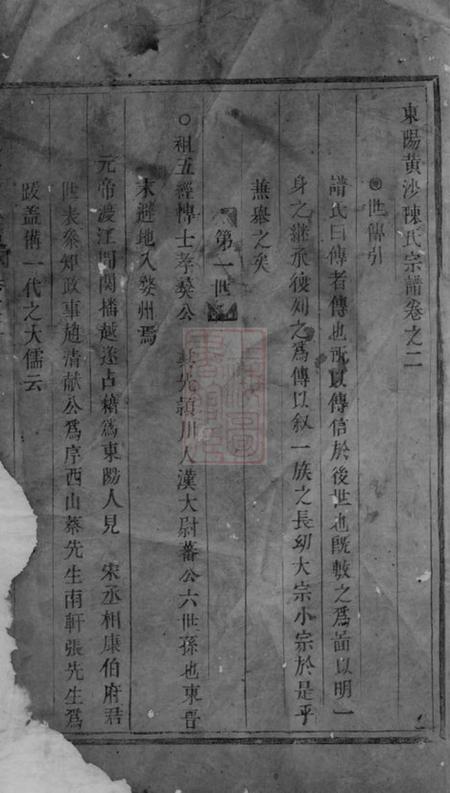 東陽黃沙陳氏宗譜卷之二
◎世傳引
譜氏曰傳者傳也所以傳信於後世也既敘之為圖以明一
身之繼承復列之為傳以叙一族之長幼大宗小宗於是乎
兼舉之矣
第一世
○祖五經博士孝奠公 其先頴川人漢大尉蕃公六世孫也東晉
末避地入婺州焉
元帝渡江間関播越遂占籍為東陽人見 宋丞相康伯府君
世表叅知政事趙清献公為序西山蔡先生南軒張先生為
跋盖僃一代之大儒云